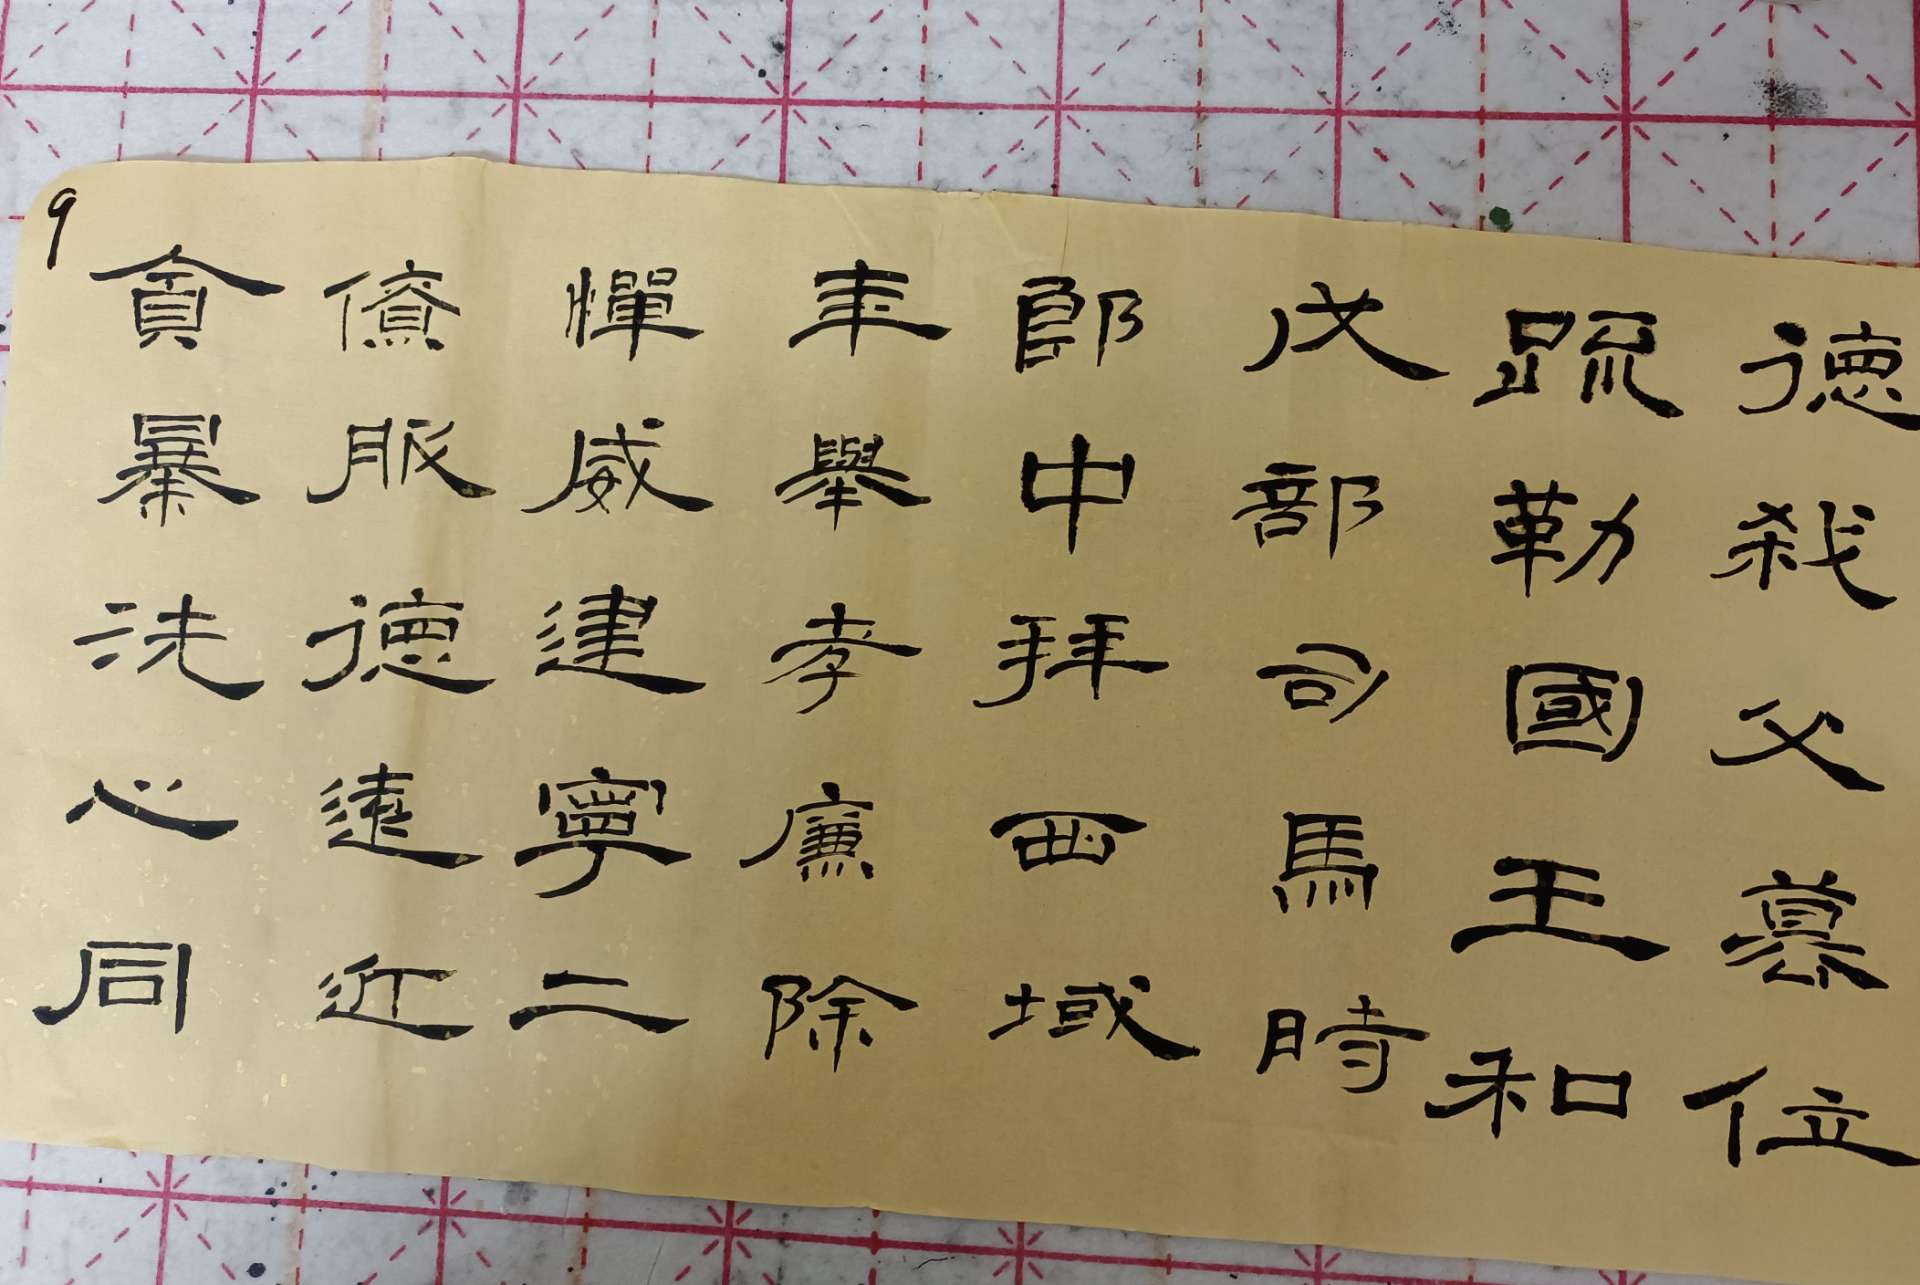 9
德弒父篡位
疏勒國王和
戊部司馬時
郎中拜西域
年舉孝廉除
憚威建寧二
僚服德遠近
貪暴洗心同